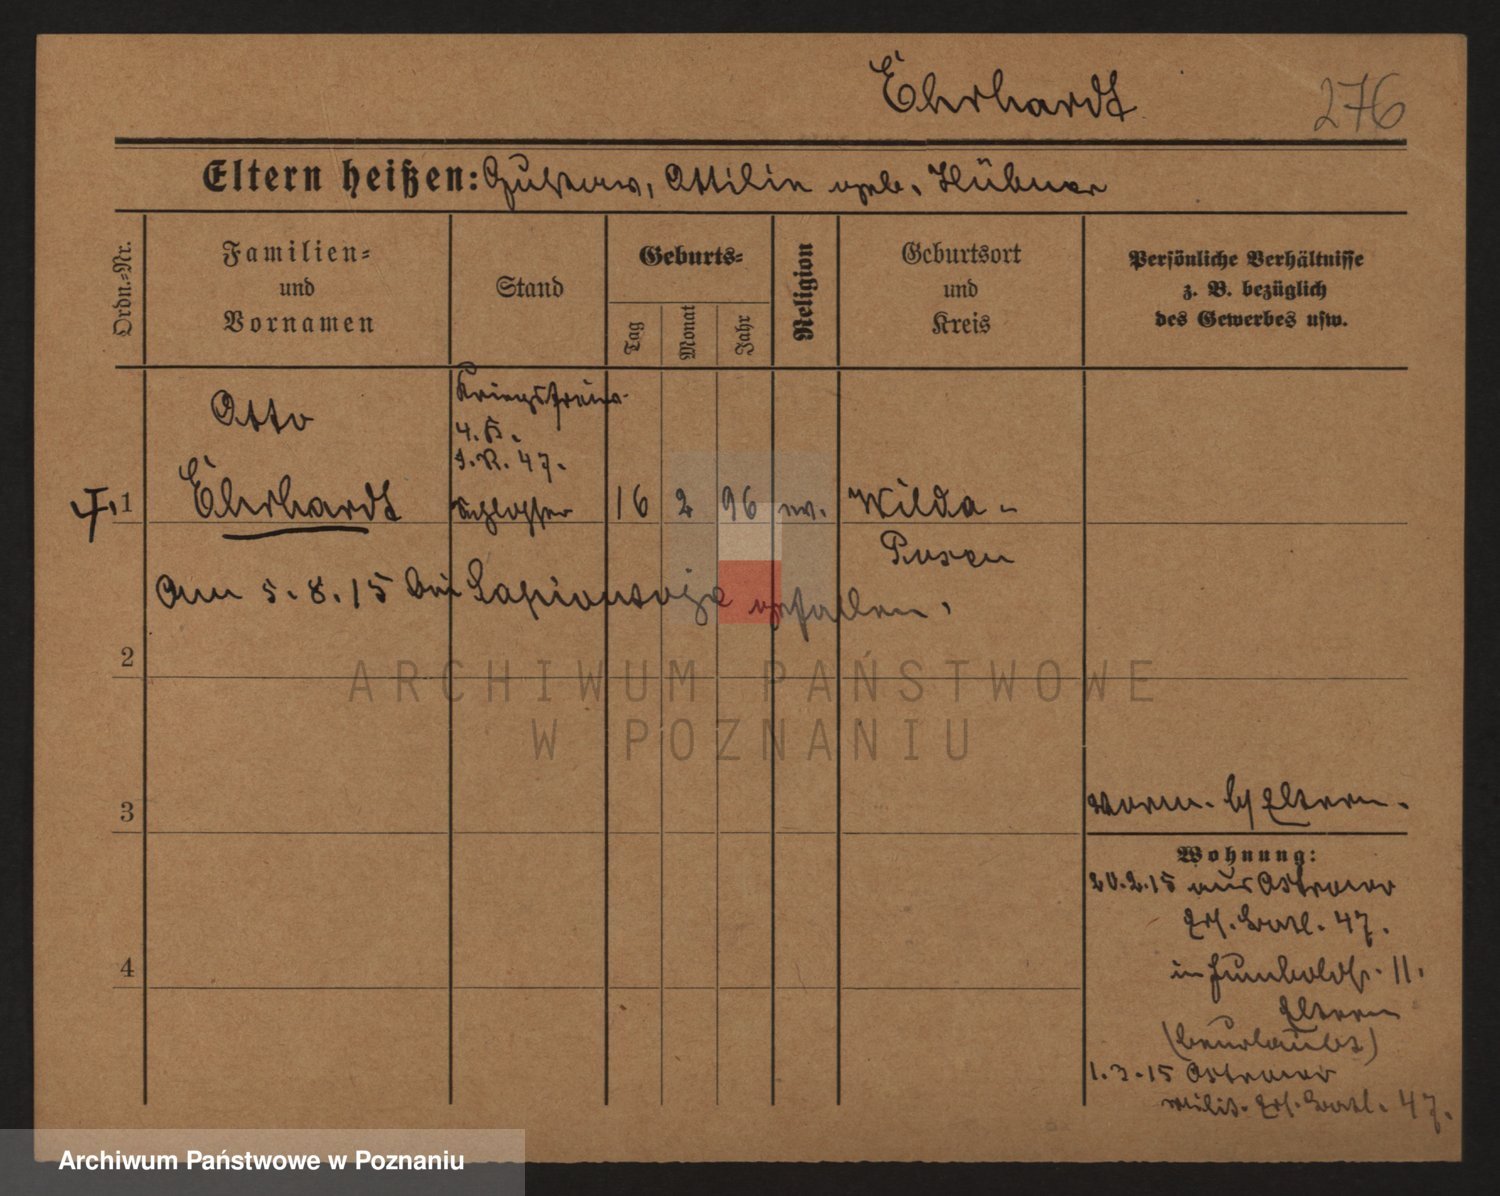 Ehrhardt
276
Eltern heißen: Gustav, Ottilie geb. Hübner
Ordn.-Nr.
Familien- und Vornamen
Stand
Geburts-
Tag
Monat
Jahr
Religion
Geburtsort und Kreis
Persönliche Verhältnisse z. B. bezüglich des Gewerbes usw.
Kriegsfreiw.
Otto
4. K.
I.R. 47.
1 Ehrhardt Schlosser 16 2 96 ev. Wilda-
Posen
Am 5.8.15 bei gefallen.
2
ARCHIWUM PAŃSTWOWE
W POZNANIU
3
vorm. b/ Eltern.
Wohnung:
20.2.15 aus Ostrowo
Ers. Batl. 47.
in Humboldtstr. 11.
Eltern
(beurlaubt)
4
1.3.15 Ostrowo
Milit. Ers. Batl. 47.
Archiwum Państwowe w Poznaniu